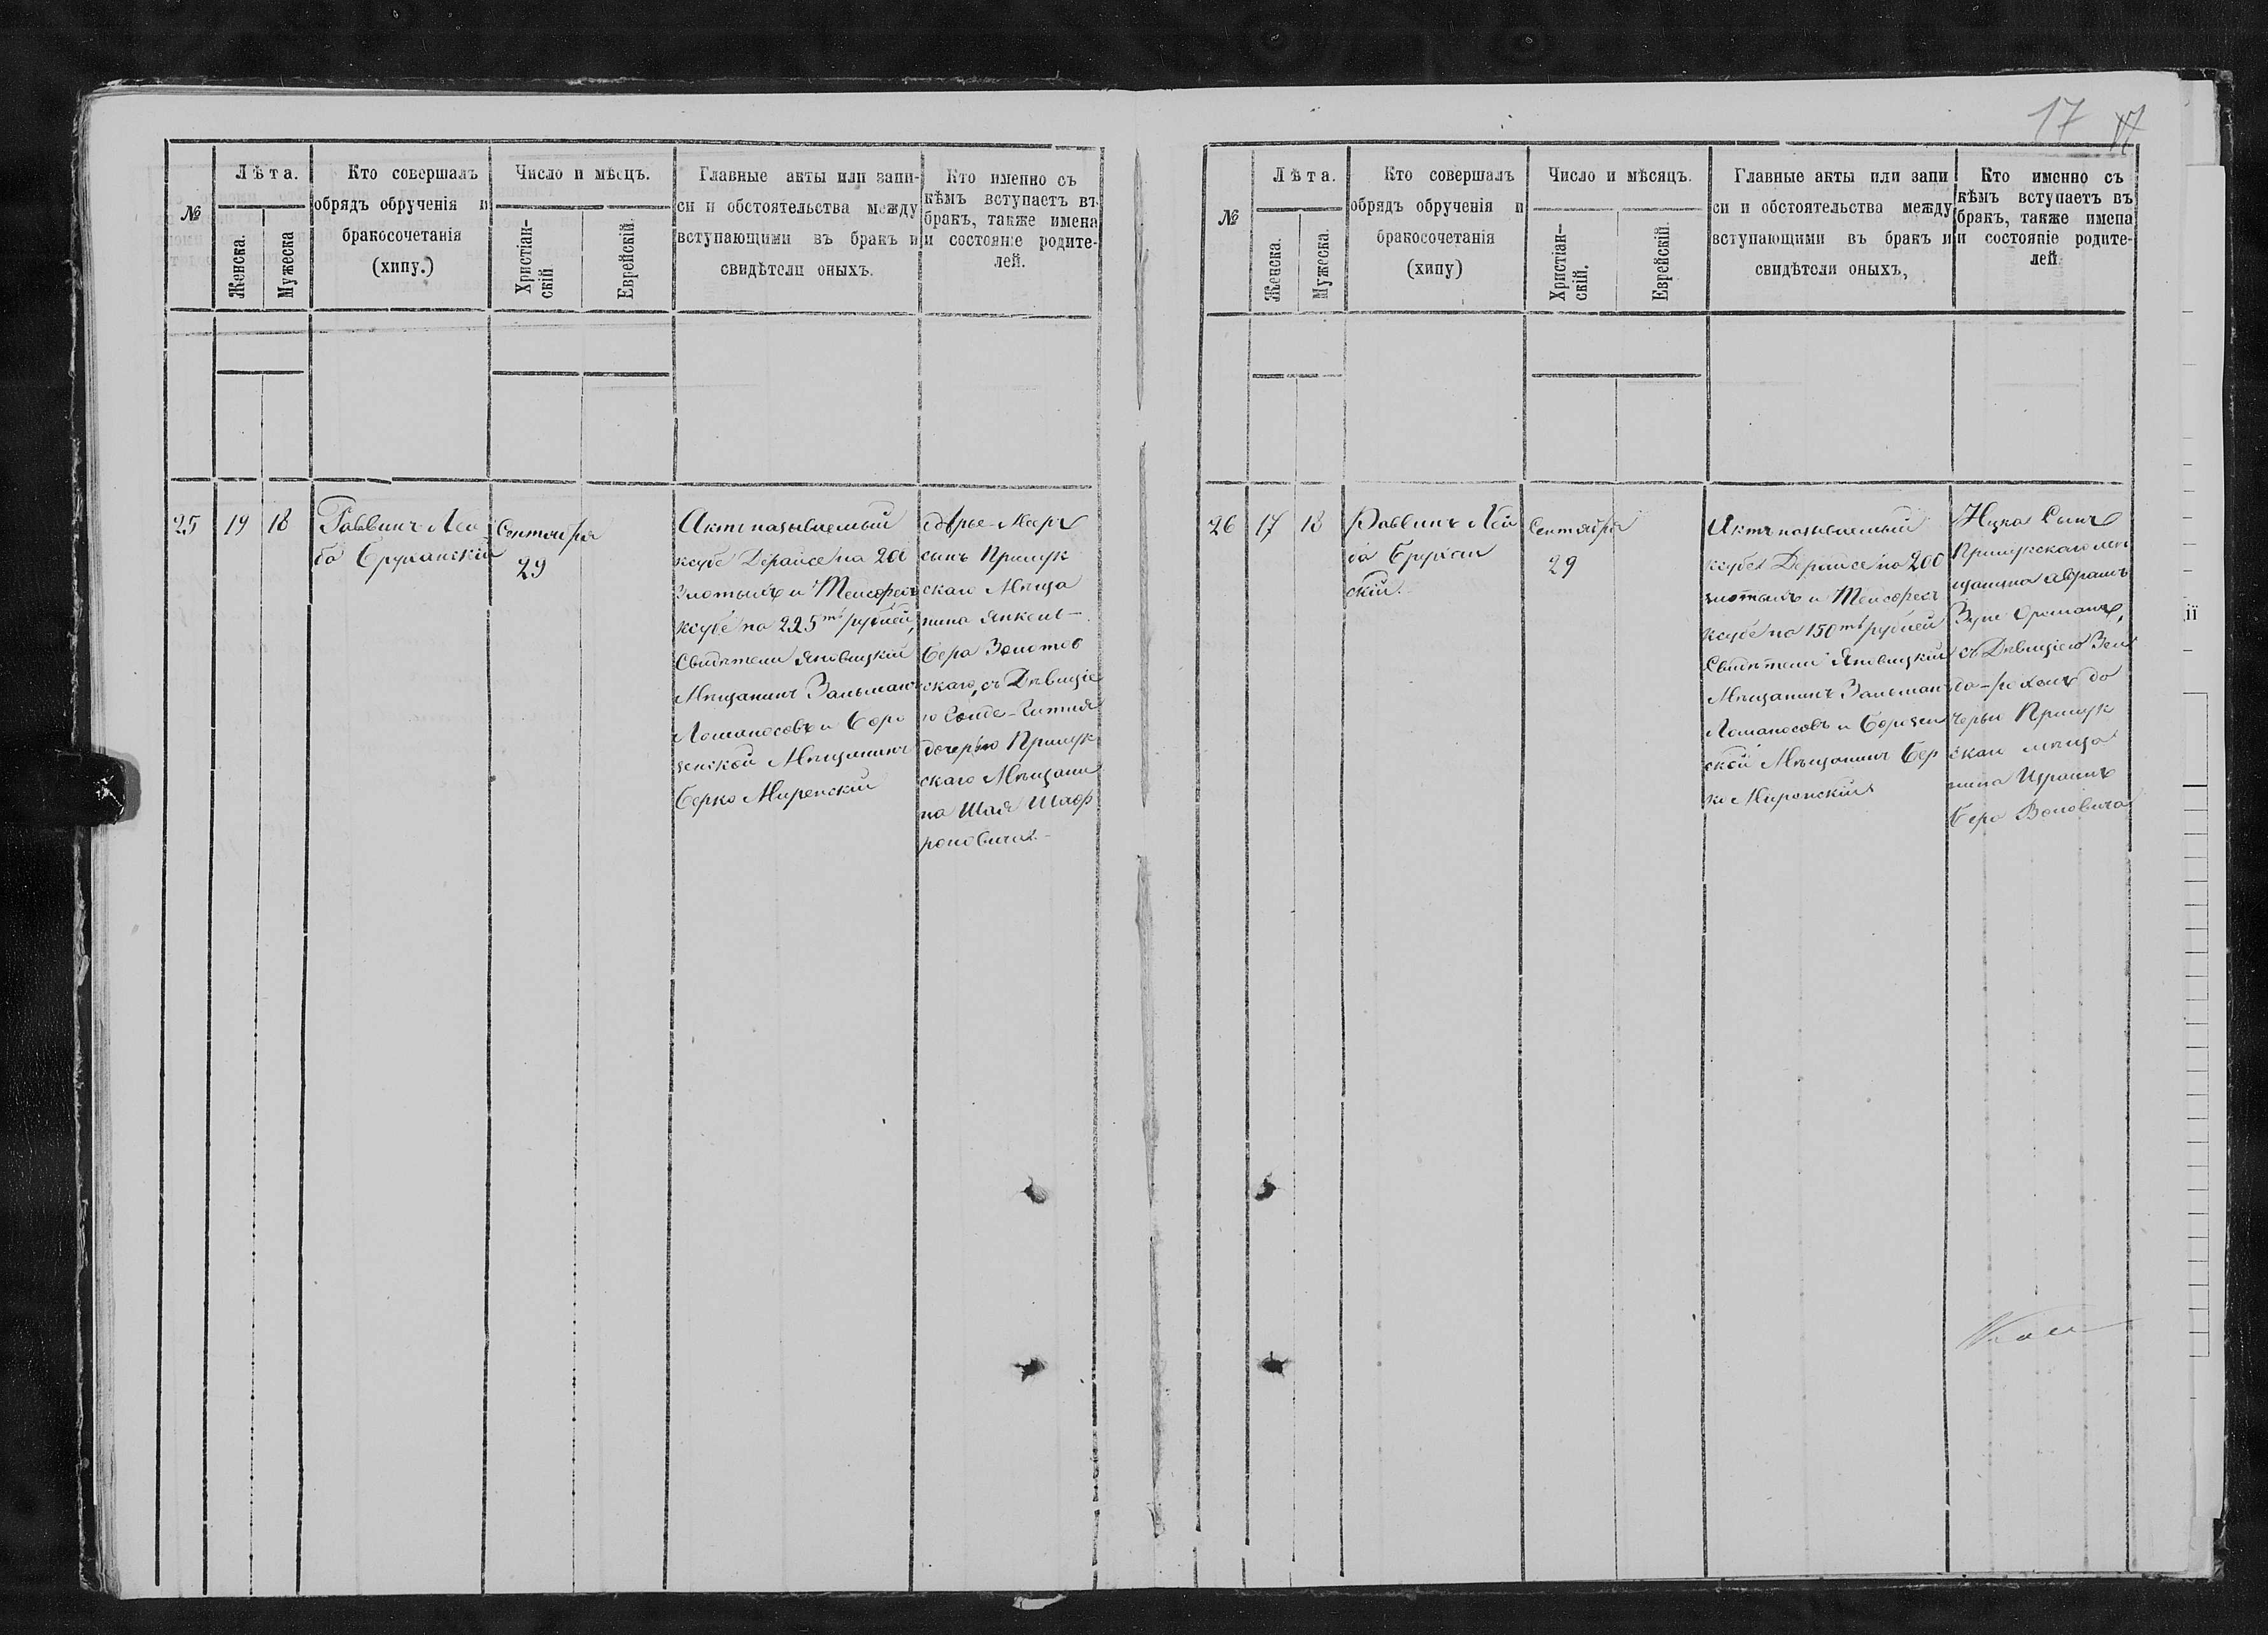 17 17
№
Лѣта.
Женска.
Мужеска
Кто совершалъ
обрядъ обрученія и
бракосочетанія
(хипу.)
Число и мѣсцъ.
Христіан-
скій
Еврейскій.
Главные акты или запи-
си и обстоятельства между
вступающими въ бракъ и
свидѣтели оныхъ.
Кто именно съ
кѣмъ вступаетъ въ
бракъ, также имена
и состояніе родите-
лей.
25
19
18
Раввинъ Лей
ба Бруханскій
Сентября
29
Актъ называемый
ксубе Дерайсе на 200
злотыхъ и Тейсофесъ
ксубе на 225тъ рублей,
Свидѣтели Яновицкій
Мѣщанинъ Зальман
Ломаносовъ и Бере
зенской Мѣщанинъ
Берко Миренскій
Арье-Мееръ
сынъ Прилук
скаго Мѣща
нина Янкель-
Бера Золотов
скаго, съ Дѣвицıе
ю
дочерью Прилук
скаго Мѣщани
на Шая Шаф
роновича.-
№
Лѣта.
Женска.
Мужеска.
Кто совершалъ
обрядъ обрученія и
бракосочетанія
(хипу)
Число и мѣсяцъ.
Христіан-
скій.
Еврейскій.
Главные акты или запи
си и обстоятельства между
вступающими въ бракъ и
свидѣтели оныхъ,
Кто именно съ
кѣмъ вступаетъ въ
бракъ, также имена
и состояніе родите-
лей.
26
17
18
Раввинъ Лей
ба Брухан
скій.
Сентября
29
Актъ называемый
ксубе Дерайсе на 200
злотыхъ и Тейсофесъ
ксубе на 150тъ рублей
Свидѣтели Яновицкій
Мѣщанинъ Зальман
Ломаносовъ и Березен
ской Мѣщанинъ Бер
ко Миренскій
Ицка Сынъ
Прилукскаго мѣ
щанина Абрамъ
съ Дѣвицıею Зел
да-Рохель до
черью Прилук
скаго мѣща
нина Израиль
Бера Воловича
ії